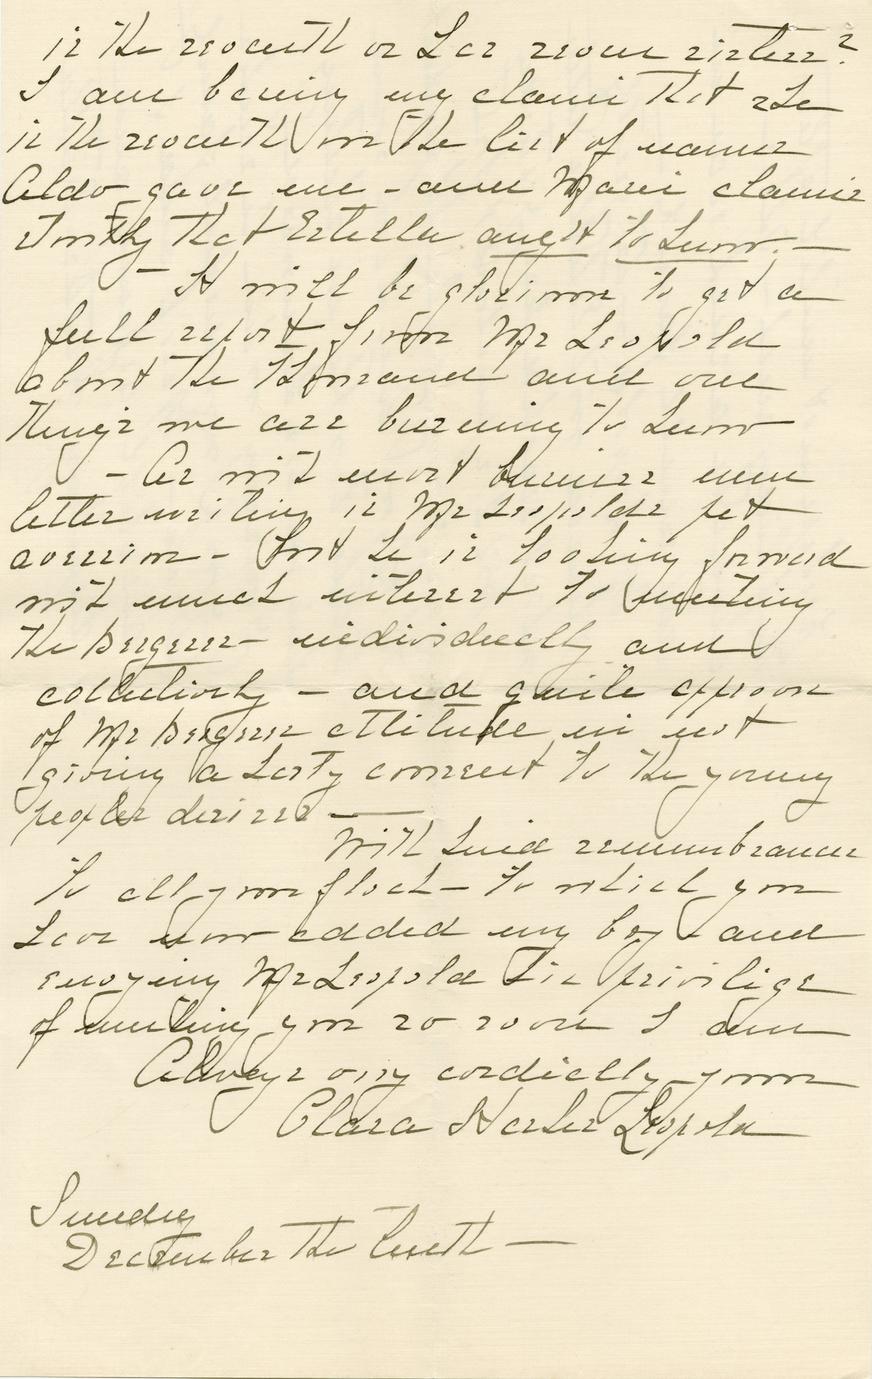 is the seventh or has seven sisters?
I am basing my claim that she
is the seventh on the list of names
Aldo gave me - and Marie claims
stoutly that Estella aught to know. —
— It will be glorious to get a
full report from Mr Leopold
about the thousand and one
things we are burning to know
- As with most business men
letter writing is Mr Leopolds pet
aversion - but he is looking forward
with much interest to meeting
the Bergeres - individually and
collectively - and quite approves
of Mr Bergeres attitude in not
giving a hasty consent to the young
peoples desires —
With kind remembrances
to all your flock - to which you
have now added my boy - and
envying Mr Leopold his privilige
of meeting you so soon I am
Always very cordially yours
Clara Leopold
Sunday
December the tenth —